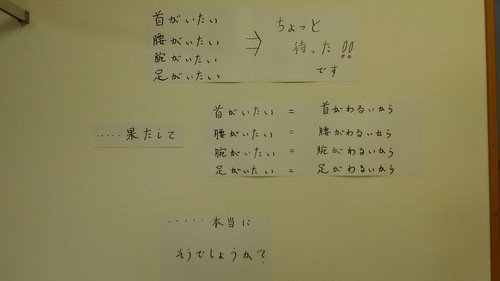 首がいたい
腰がいたい
腕がいたい
足がいたい
⇒
ちょっと
待った!!
です
‥‥‥果たして
首がいたい = 首がわるいから
腰がいたい = 腰がわるいから
腕がいたい = 腕がわるいから
足がいたい = 足がわるいから
‥‥‥本当に
そうでしょうか?